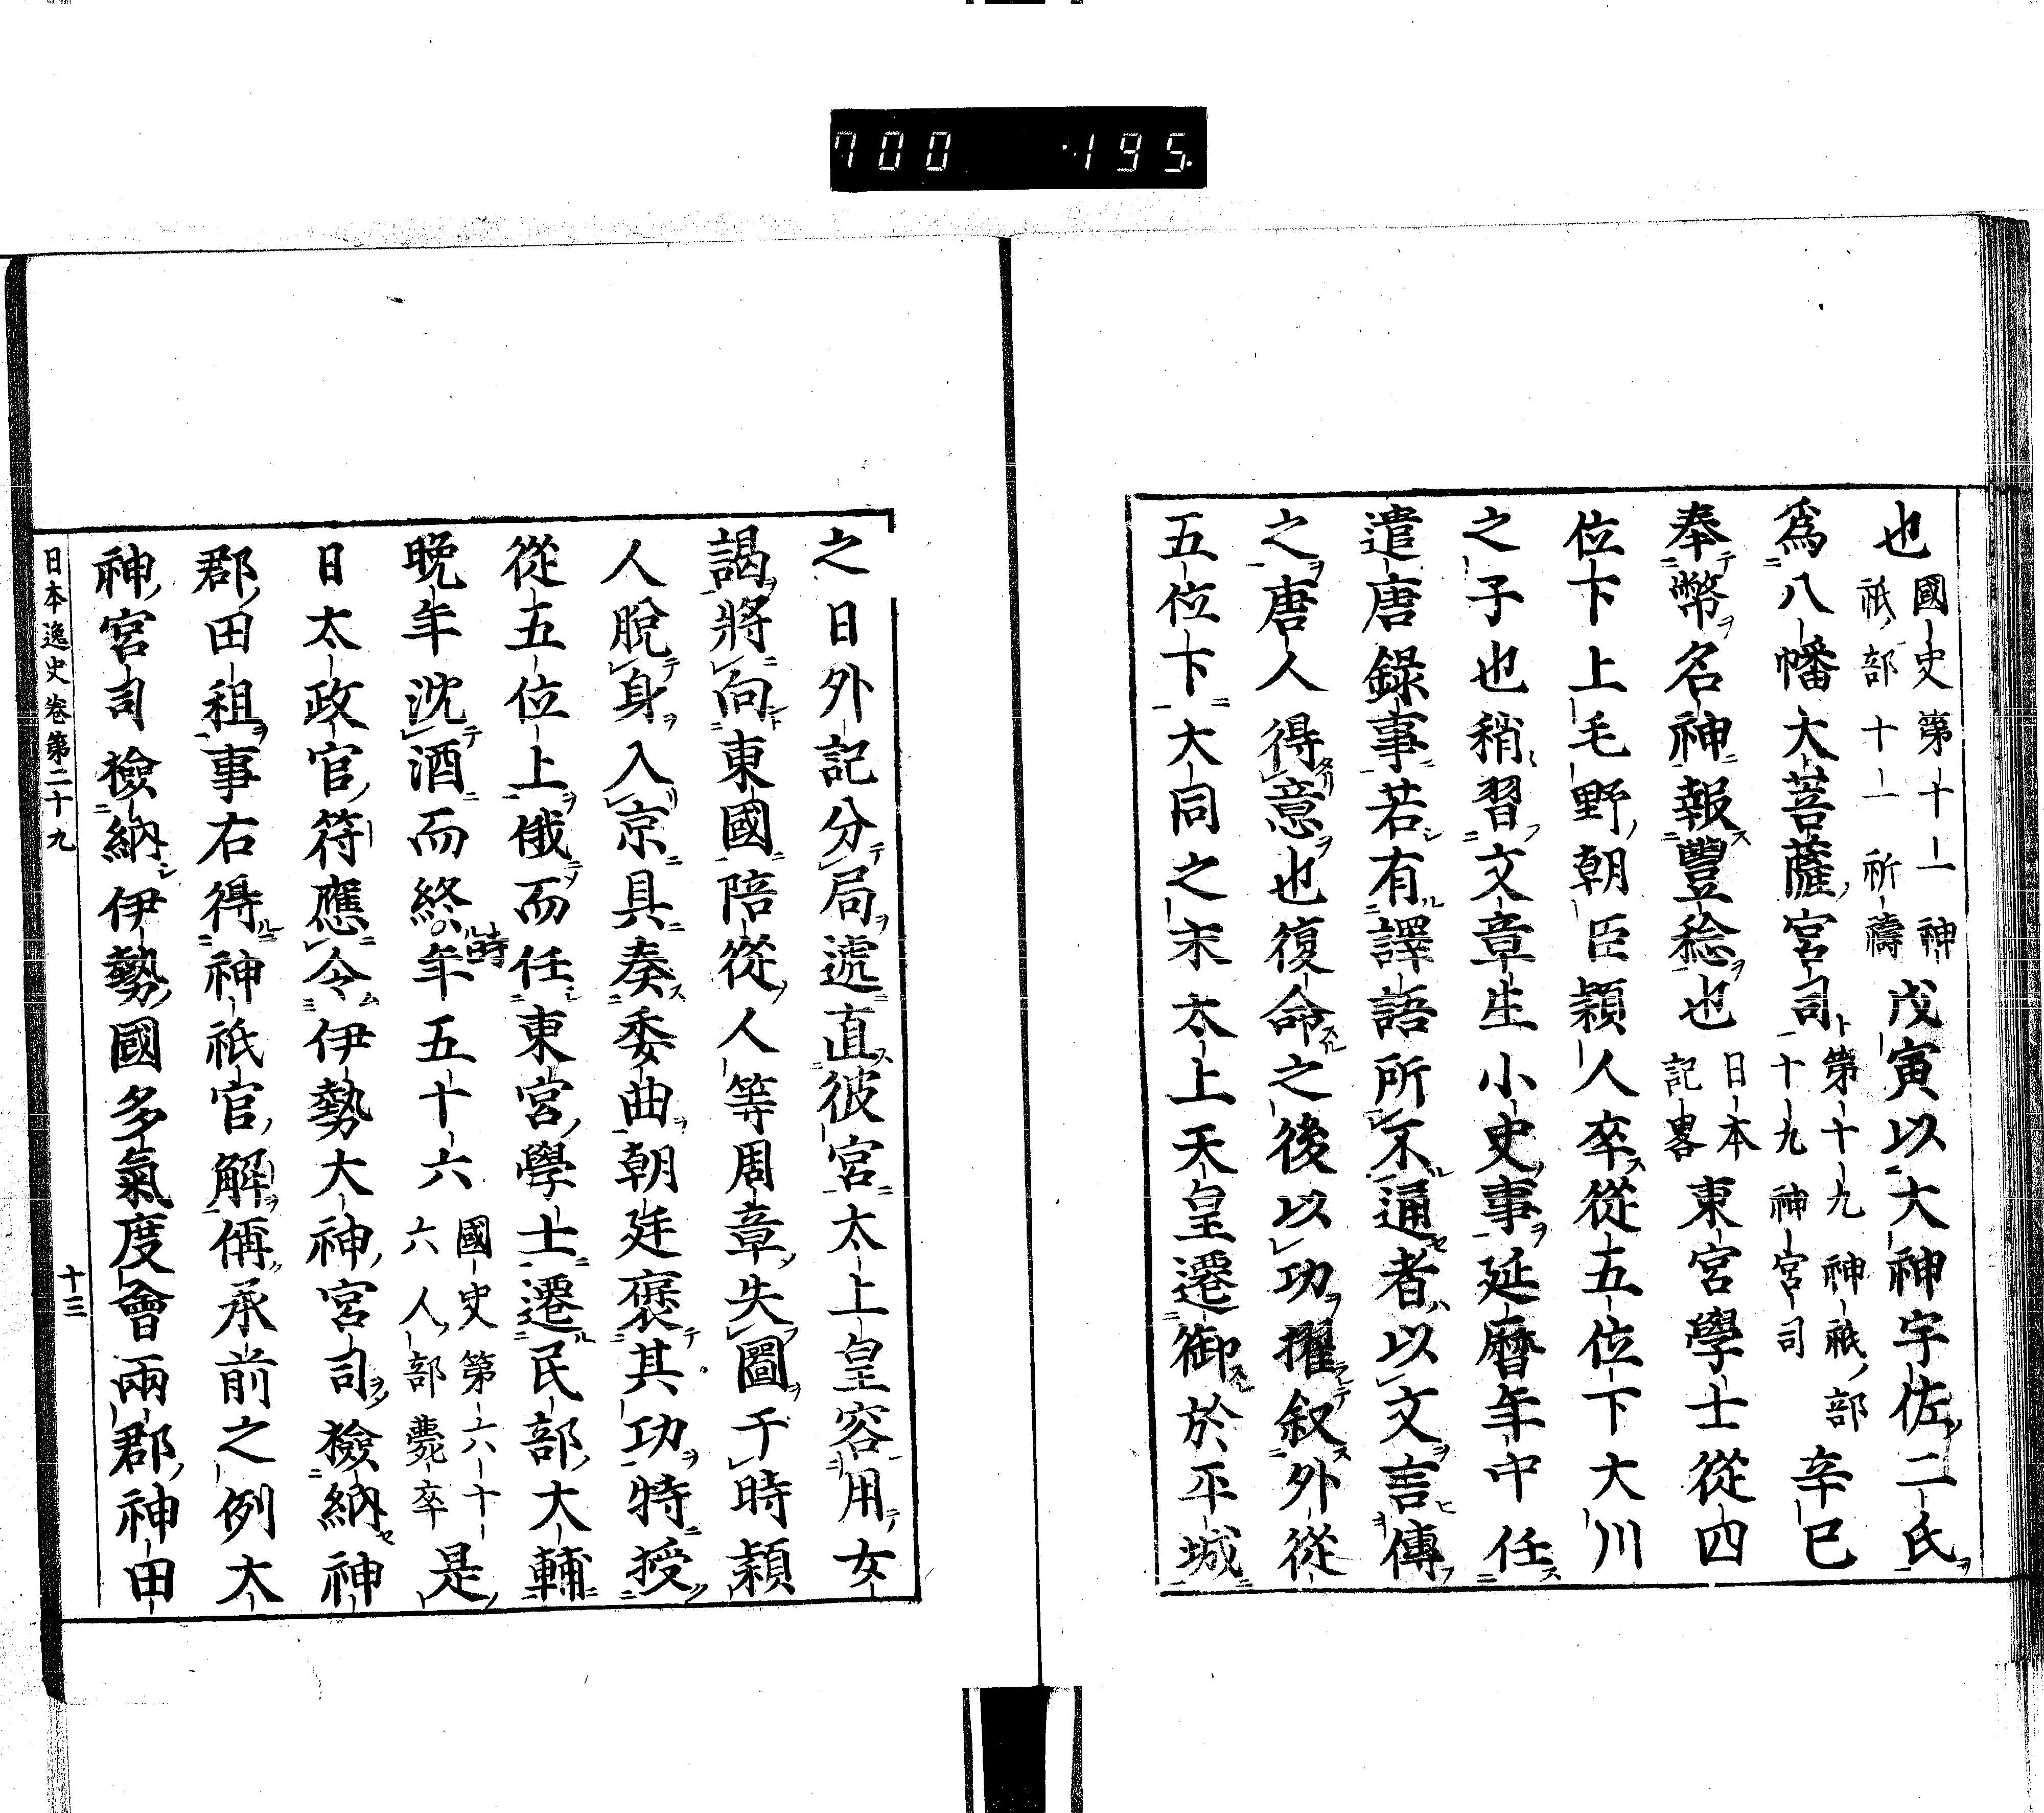 700 195
也國史第十一神祇部十一祈禱戊寅以大神宇佐二氏
爲八幡大菩薩宮司第十九神祇部十九神宮司辛巳
奉幣名神報豐稔也日本記畧東宮學士從四
位下上毛野朝臣穎人卒從五位下大川
之子也稍習文章生小史事延曆年中任
遣唐錄事若有譯語所不通者以文言傳
之唐人得意也復命之後以功擢叙外從
五位下大同之末太上天皇遷御於平城
之日外記分局遞直彼宮太上皇容用女
謁將向東國陪從人等周章失圖于時穎
人脫身入京具奏委曲朝廷褒其功特授
從五位上俄而任東宮學士遷民部大輔
晚年沈酒而終時年五十六國史第六十六人部薨卒是
日太政官符應令伊勢大神宮司檢納神
郡田租事右得神祇官解偁承前之例太
神宮司檢納伊勢國多氣度會兩郡神田
日本逸史卷第二十九 十三